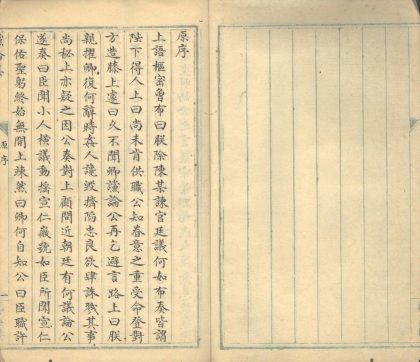 原序
上語樞密魯布曰朕除陳某諫官廷議何如布奏皆謂
陛下得人上曰尚未肯供職公知眷意之重受命登對
方造膝上遽曰久不聞卿讜論公再乞避言路上曰朕
親擢卿復何辭時姦人讒毀擠陷忠良欲肆誅戮其事
尚秘上亦疑之因公奏對上顧問近朝廷有何議論公
遂奏曰臣聞小人橫議動搖宣仁徽號如臣所聞宣仁
保佑聖躬終始無間上竦然曰卿何自知公曰臣職許
原序
一